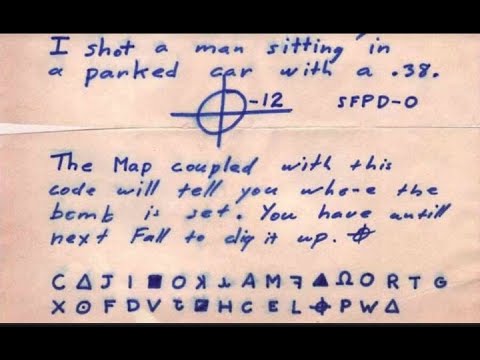 I shot a man sitting in
a parked car with a .38.
⌖-12 SFPD-0
The Map coupled with this
code will tell you where the
bomb is set. You have untill
next Fall to dig it up. ⌖
C Δ J I ■ O ʞ ⅄ A M ꟻ ▲ Ω O R T G
X ⊙ F D V Ʇ ◪ H C E L ⌖ P W Δ